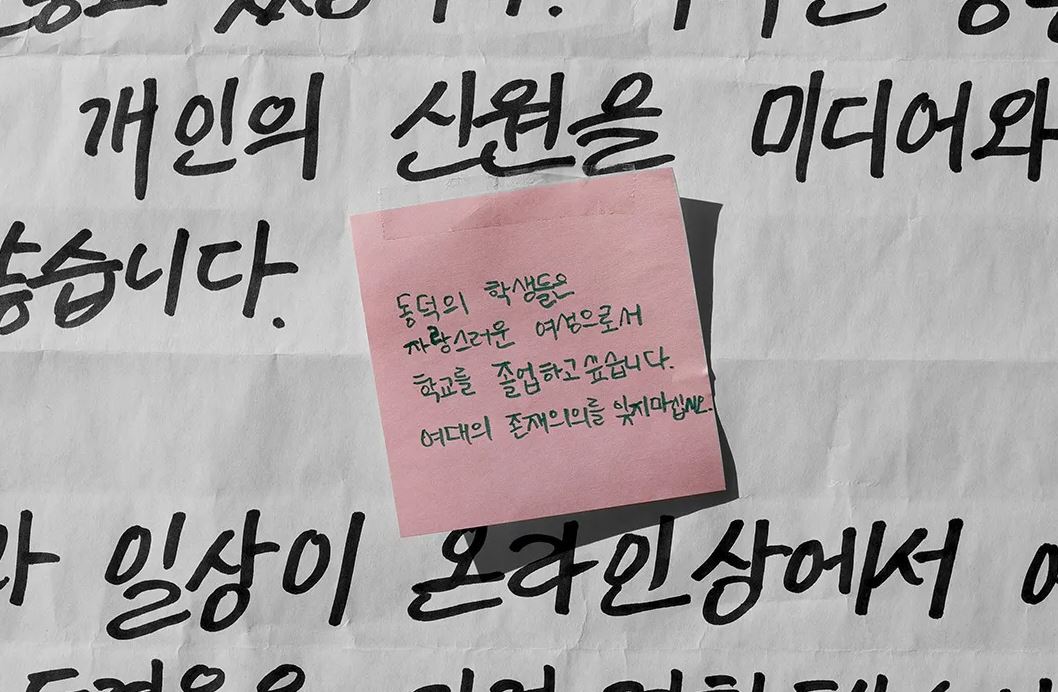 개인의 신원을 미디어와
습니다.
동덕의 학생들은
자랑스러운 여성으로서
학교를 졸업하고 싶습니다.
여대의 존재의의를 잊지마십시오.
일상이 온라인상에서